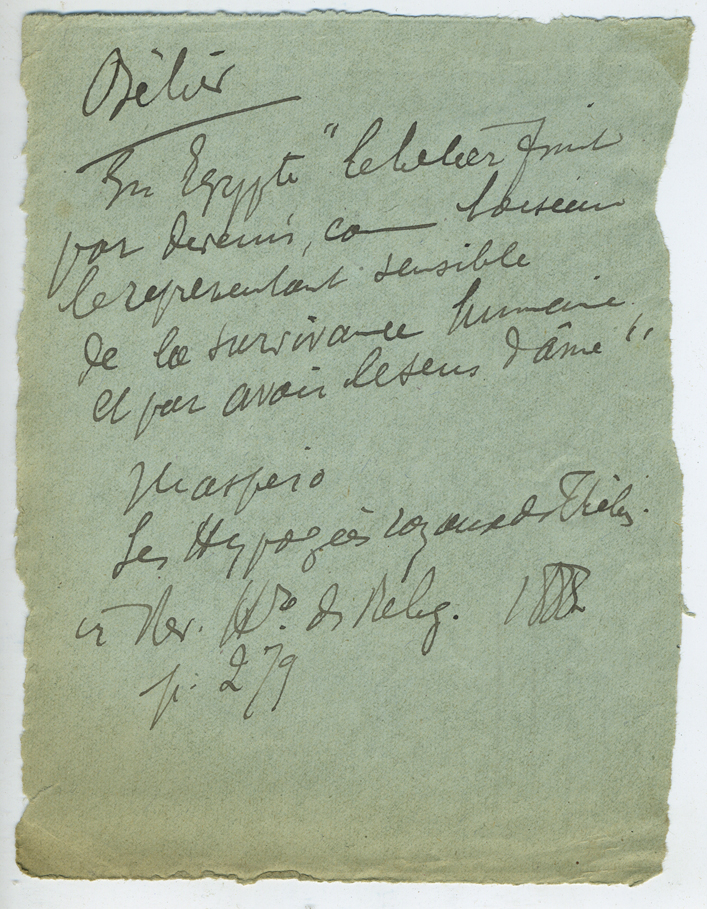 Bélier
En Egypte "le belier finit
par devenir, com l'oiseau
le représentant sensible
de la survivance humaine
et par avoir le sens d'âme"
Maspero
Les Hypogées royaux de Thèbes.
in Rev. Hre de Relig. 1888
p. 279